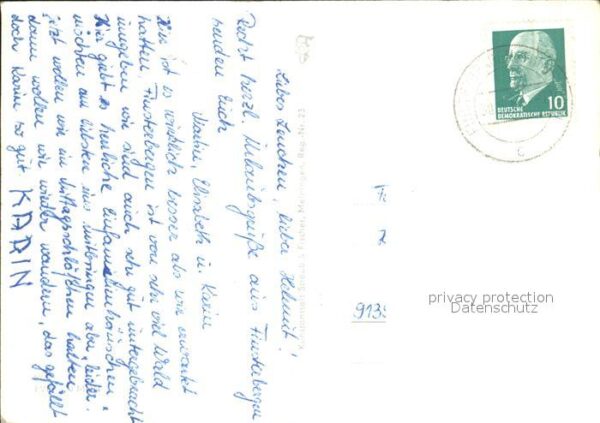 Liebes Lenchen, lieber Helmut!
Recht herzl. Urlaubsgrüße aus Finsterbergen
senden Euch
Martin, Elisabeth u. Karin
Hier ist es wirklich besser als wir erwartet
hatten. Finsterbergen ist von sehr viel Wald
umgeben wir sind auch sehr gut untergebracht
Hier giebt es herrliche Einfamilienhäuschen,
möchten am liebsten eins mitbringen aber, leider.
jetzt wollen wir ein Mittagsschläfchen halten
dann wollen wir wieder wandern, das gefällt
doch Karin so gut.
KARIN
DEUTSCHE
DEMOKRATISCHE REPUBLIK
10
9135
privacy protection
Datenschutz